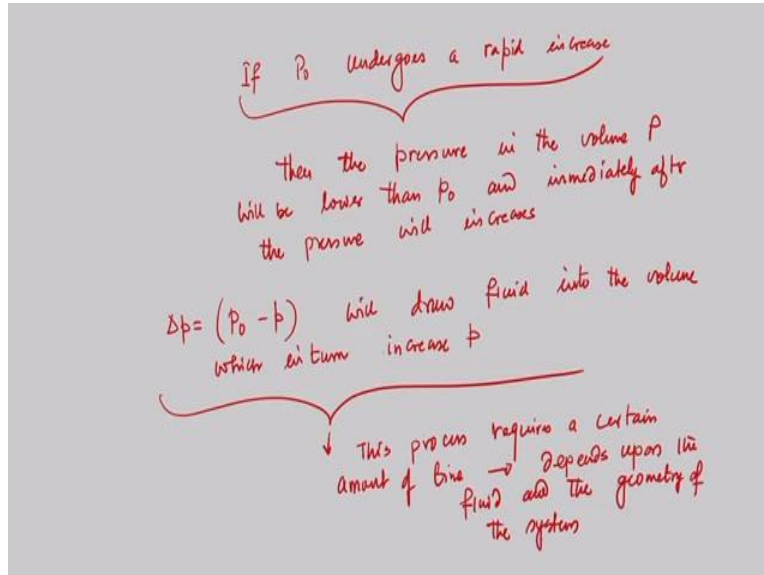 If P₀ undergoes a rapid increase
then the pressure in the volume p
will be lower than p₀ and immediately after
the pressure will increases
Δp = (P₀ - p) will draw fluid into the volume
which in turn increase p
↓ This process requires a certain
amount of time → depends upon the
fluid and the geometry of
the system